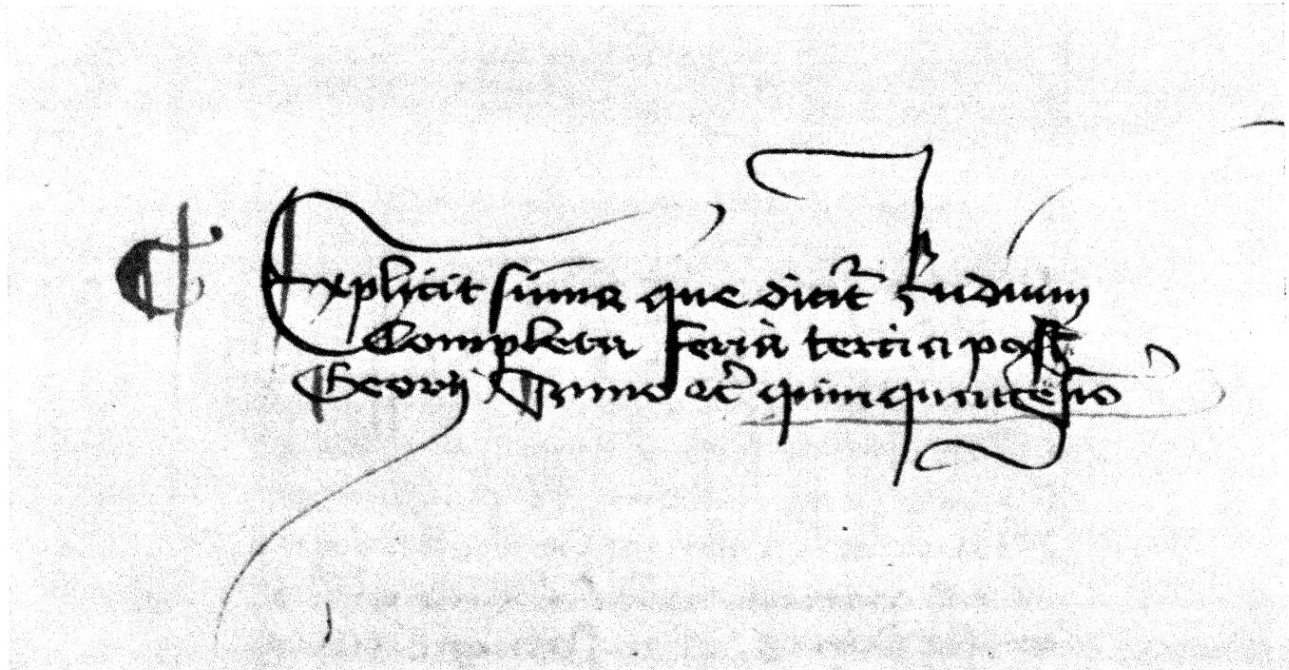 Explicit suma que dicit Rudium
Completa feria tercia post
Georij Anno etc quinquagesio